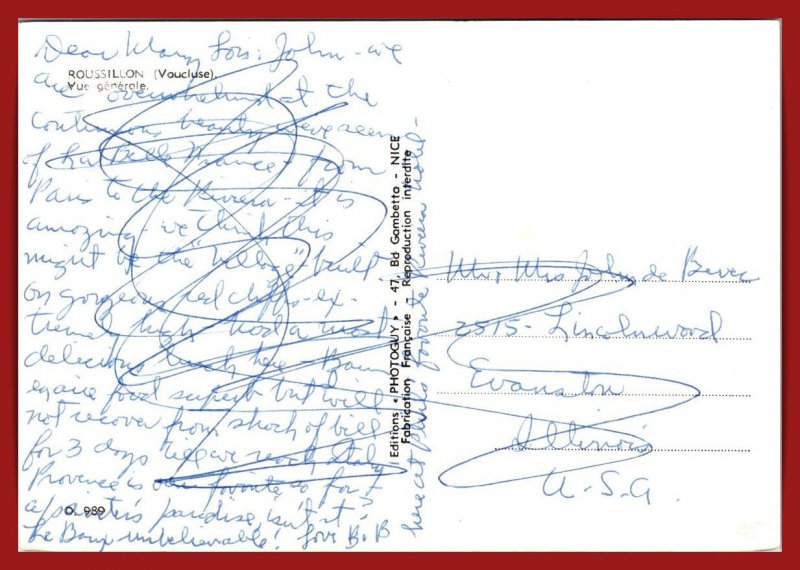 Dear Mary, Lois, John - we
ROUSSILLON (Vaucluse).
Vue générale.
are overwhelmed at the
continuous beauty we've seen
of La Belle France - from
Paris to the Riviera - It is
amazing - we think this
might be the "village" built
on gorgeous red cliffs - ex-
treme high had a most
delicious lunch here -
food superb but will
not recover from shock of bill
for 3 days till we reach Italy
Provence is our favorite so far
a painter's paradise isn't it?
Le Baux unbelievable! Love B.B
O. 989
Editions « PHOTOGUY » - 47, Bd Gambetta - NICE
Fabrication Française - Reproduction interdite
here at favorite Riviera hotel -
Mr. Mrs John de Bever
2515 - Lincolnwood
Evanston
Illinois
U.S.A.